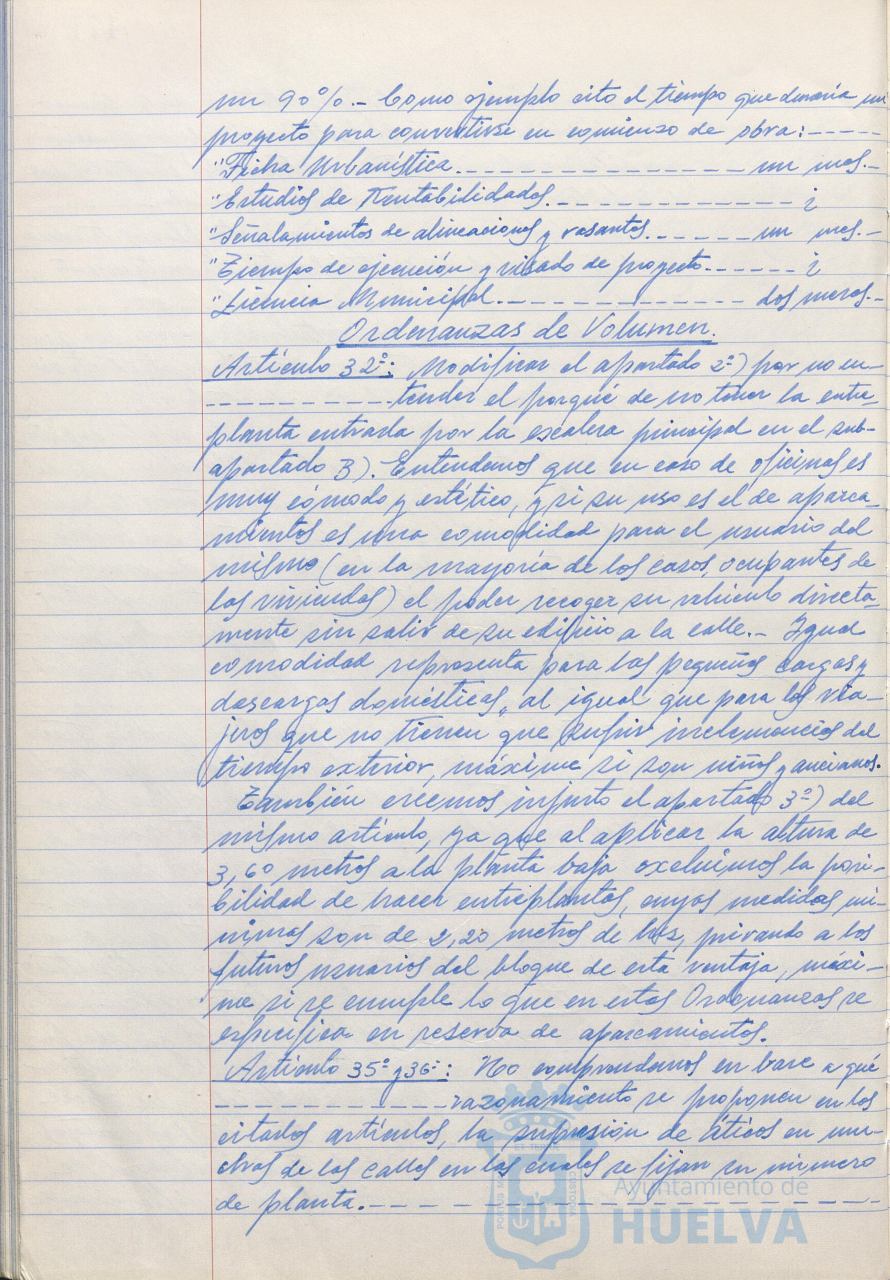 un 90%.- Como ejemplo cito el tiempo que duraría un
proyecto para convertirse en comienzo de obra:----
"Ficha Urbanística.--------------- un mes.-
"Estudios de Rentabilidades.------------ ¿
"Señalamientos de alineaciones y rasantes.----- un mes.-
"Tiempo de ejecución y visado de proyecto.----- ¿
"Licencia Municipal.------------- dos meses.-
Ordenanzas de Volumen.
Artículo 32º: Modificar el apartado 2º) por no en-
-----------tender el porqué de no tener la entre-
planta entrada por la escalera principal en el sub-
apartado 3). Entendemos que en caso de oficinas es
muy cómodo y estético, y si su uso es el de aparca-
mientos es una comodidad para el usuario del
mismo (en la mayoría de los casos, ocupantes de
las viviendas) el poder recoger su vehículo directa-
mente sin salir de su edificio a la calle.- Igual
comodidad representa para las pequeñas cargas y
descargas domésticas, al igual que para los via-
jeros que no tienen que sufrir inclemencias del
tiempo exterior, máxime si son niños y ancianos.
También creemos injusto el apartado 3º) del
mismo artículo, ya que al aplicar la altura de
3,60 metros a la planta baja excluimos la posi-
bilidad de hacer entreplantas, cuyas medidas mí-
nimas son de 2,20 metros de luz, privando a los
futuros usuarios del bloque de esta ventaja, máxi-
me si se cumple lo que en estas Ordenanzas se
especifica en reserva de aparcamientos.
Artículo 35º y 36º: No comprendemos en base a qué
-------------razonamiento se proponen en los
citados artículos, la supresión de áticos en mu-
chas de las calles en las cuales se fijan su número
de planta.-----------------------
Ayuntamiento de
HUELVA